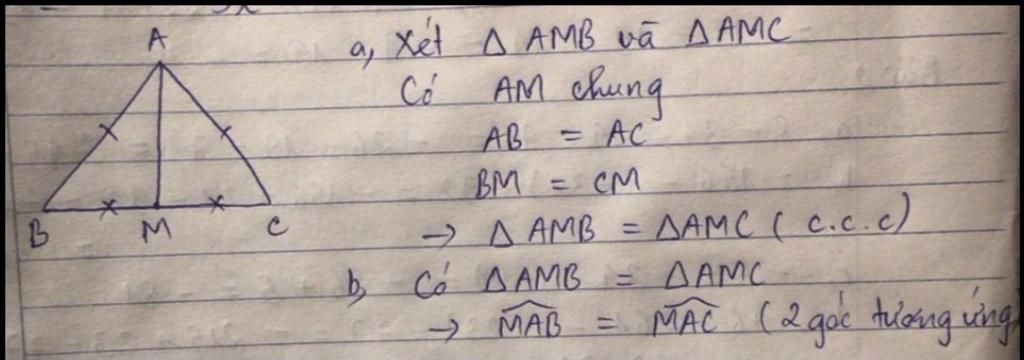 A
B M C
a, Xét △ AMB và △AMC
Có AM chung
AB = AC
BM = CM
→ △ AMB = △AMC ( c.c.c)
b, Có △AMB = △AMC
→ \widehat{MAB} = \widehat{MAC} (2 góc tương ứng